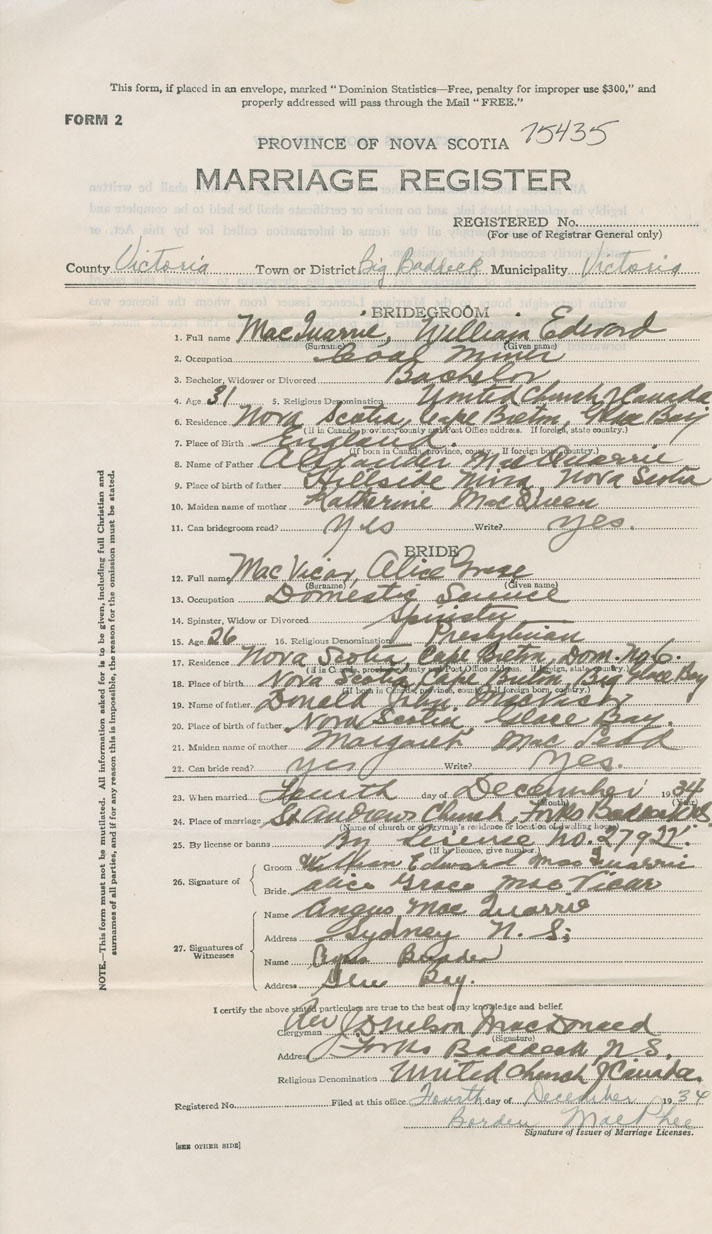 This form, if placed in an envelope, marked "Dominion Statistics—Free, penalty for improper use $300," and
properly addressed will pass through the Mail "FREE."
FORM 2
PROVINCE OF NOVA SCOTIA 15435
MARRIAGE REGISTER
REGISTERED No.
(For use of Registrar General only)
County Victoria Town or District Big Baddeck Municipality Victoria
BRIDEGROOM
1. Full name MacQuarrie, William Edward
(Surname) (Given name)
2. Occupation Coal Miner
3. Bachelor, Widower or Divorced Bachelor
4. Age 31 5. Religious Denomination United Church of Canada
6. Residence Nova Scotia, Cape Breton, Glace Bay
(If in Canada, province, county and Post Office address. If foreign, state country.)
7. Place of Birth England.
(If born in Canada, province, county. If foreign born, country.)
8. Name of Father Alexander MacQuarrie
9. Place of birth of father Hillside Mira, Nova Scotia
10. Maiden name of mother Katherine MacQueen
11. Can bridegroom read? Yes Write? Yes.
BRIDE
12. Full name MacVicar, Alice Grace
(Surname) (Given name)
13. Occupation Domestic Science
14. Spinster, Widow or Divorced Spinster
15. Age 26 16. Religious Denomination Presbyterian
17. Residence Nova Scotia, Cape Breton, Dom. No 6.
(If in Canada, province, county and Post Office address. If foreign, state country.)
18. Place of birth Nova Scotia, Cape Breton, Big Glace Bay
(If born in Canada, province, county. If foreign born, country.)
19. Name of father Donald John MacVicar
20. Place of birth of father Nova Scotia Glace Bay.
21. Maiden name of mother Margaret Mac
22. Can bride read? Yes Write? Yes.
23. When married Fourth day of December 1934
(Month) (Year)
24. Place of marriage St Andrews Church, Forks Baddeck N.S.
(Name of church or clergyman's residence or location of dwelling house)
25. By license or banns By license no. 27922.
(If by licence, give number.)
26. Signature of
Groom William Edward MacQuarrie
Bride Alice Grace MacVicar
27. Signatures of Witnesses
Name Angus MacQuarrie
Address Sydney N.S.
Name
Address Glace Bay.
I certify the above stated particulars are true to the best of my knowledge and belief.
Clergyman Rev MacDonald
(Signature)
Address Forks Baddeck N.S.
Religious Denomination United Church of Canada.
Registered No. Filed at this office Fourth day of December 1934
Borden MacPhee
Signature of Issuer of Marriage Licenses.
[SEE OTHER SIDE]
NOTE.—This form must not be mutilated. All information asked for is to be given, including full Christian and
surnames of all parties, and if for any reason this is impossible, the reason for the omission must be stated.